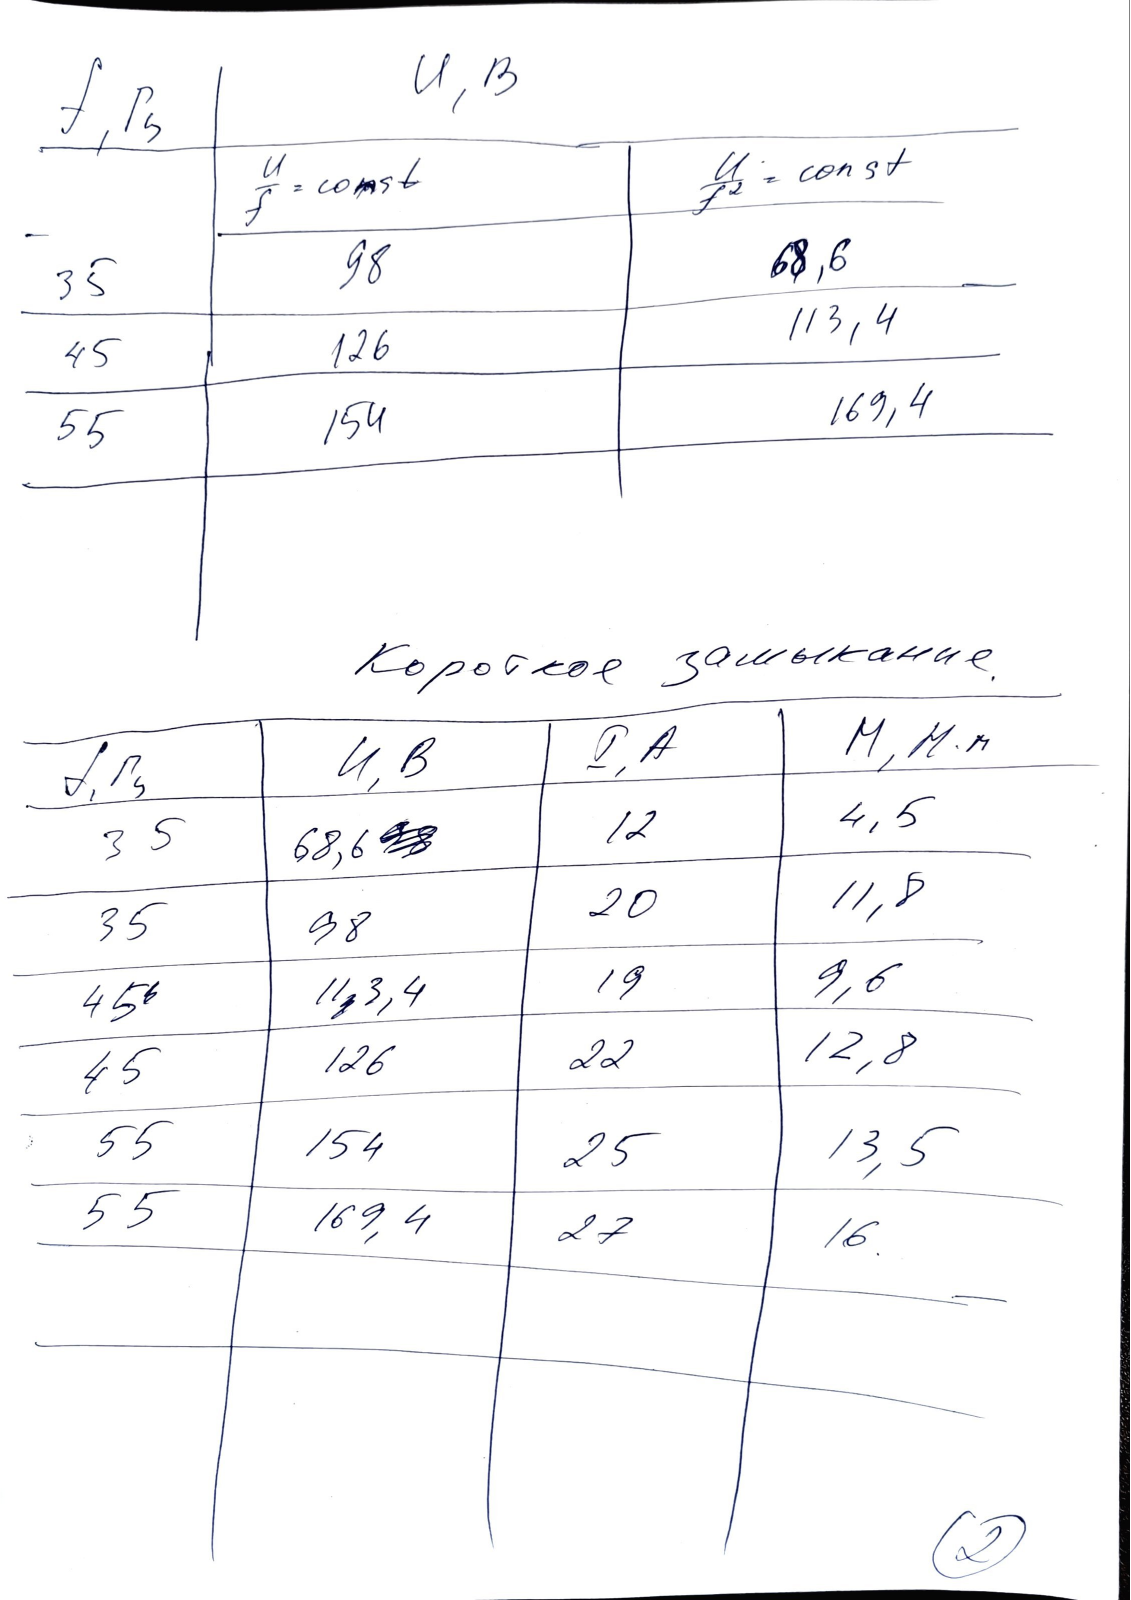 f, Гц U, В
U/f = const U/f² = const
35 98 68,6
45 126 113,4
55 154 169,4
Короткое замыкание.
f, Гц U, В I, А М, Н·м
35 68,6 12 4,5
35 98 20 11,8
45 113,4 19 9,6
45 126 22 12,8
55 154 25 13,5
55 169,4 27 16.
2